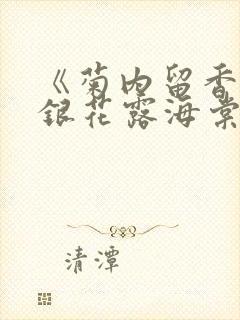 《菊内留香
銀花露海棠
清潭